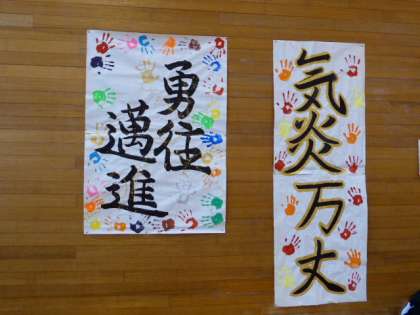 勇往
邁進
気炎万丈